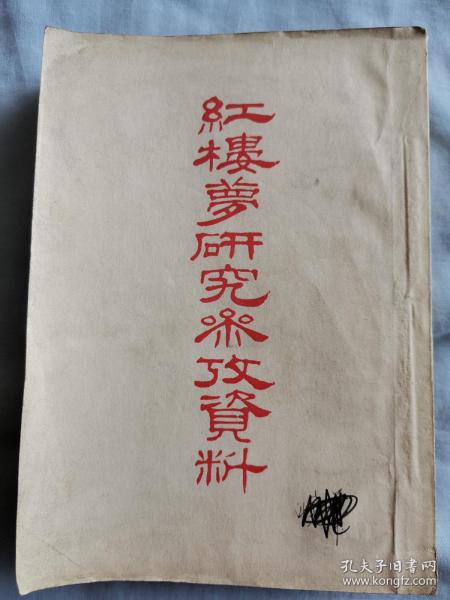 紅樓夢研究叅攷資料
孔夫子旧书网
www.kongfz.com